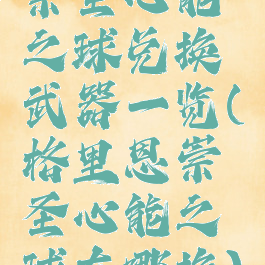 崇圣心能
之球兑换
武器一览(
格里恩崇
圣心能之
球在哪换)